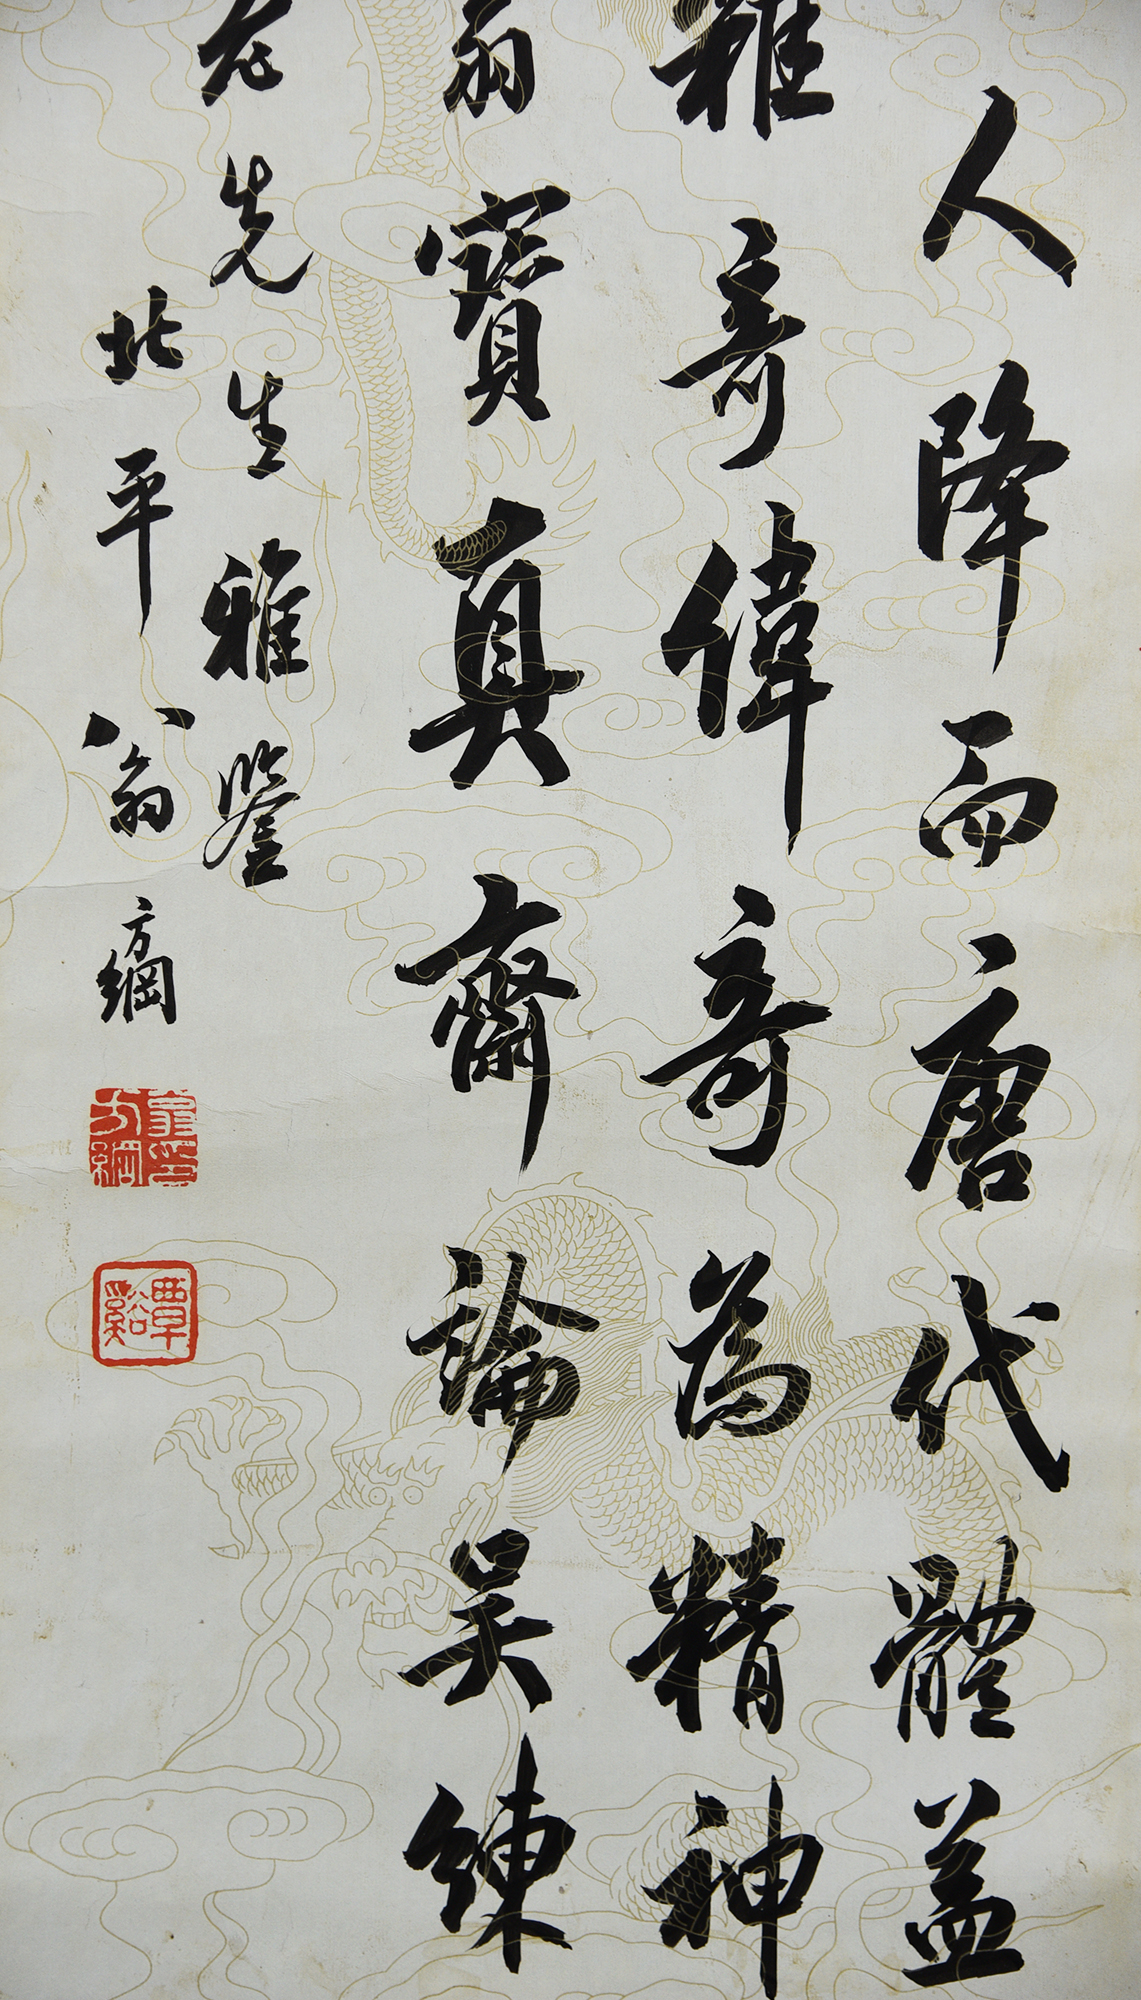 人降而唐代體益
雜奇偉奇為精神
翁寶真齋論吴練
先生雅鑒
北平翁方綱
翁方綱印
覃谿